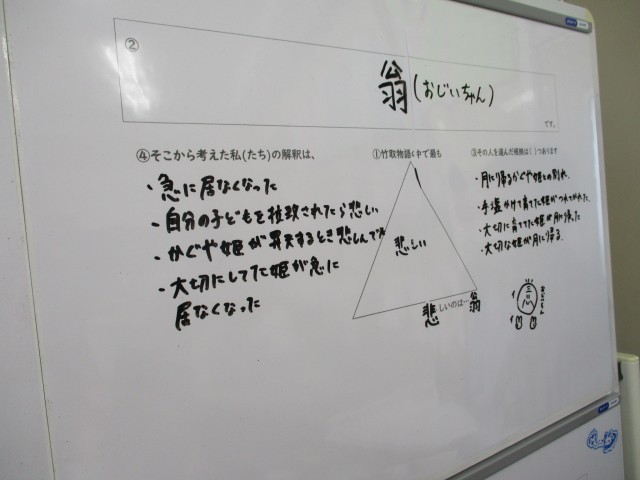 ②
翁(おじいちゃん)
です。
④そこから考えた私(たち)の解釈は、
・急に居なくなった
・自分の子どもを拉致されたら悲しい
・かぐや姫が昇天するとき悲しんで
・大切にしてた姫が急に
居なくなった
①竹取物語の中で最も
悲しい
悲しいのは…翁
③その人を選んだ根拠は( )つあります
・月に帰るかぐや姫との別れ
・手塩かけて育てた姫がつれてかれた
・大切に育ててた姫が月に帰った
・大切な姫が月に帰る
おじいちゃん